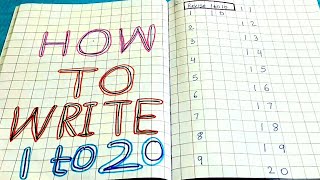 HOW
TO
WRITE
1 to 20
Revise 1 to 20
1 10 11
2 12
3 13
4 14
5 15
6 16
7 17
8 18
9 19
20